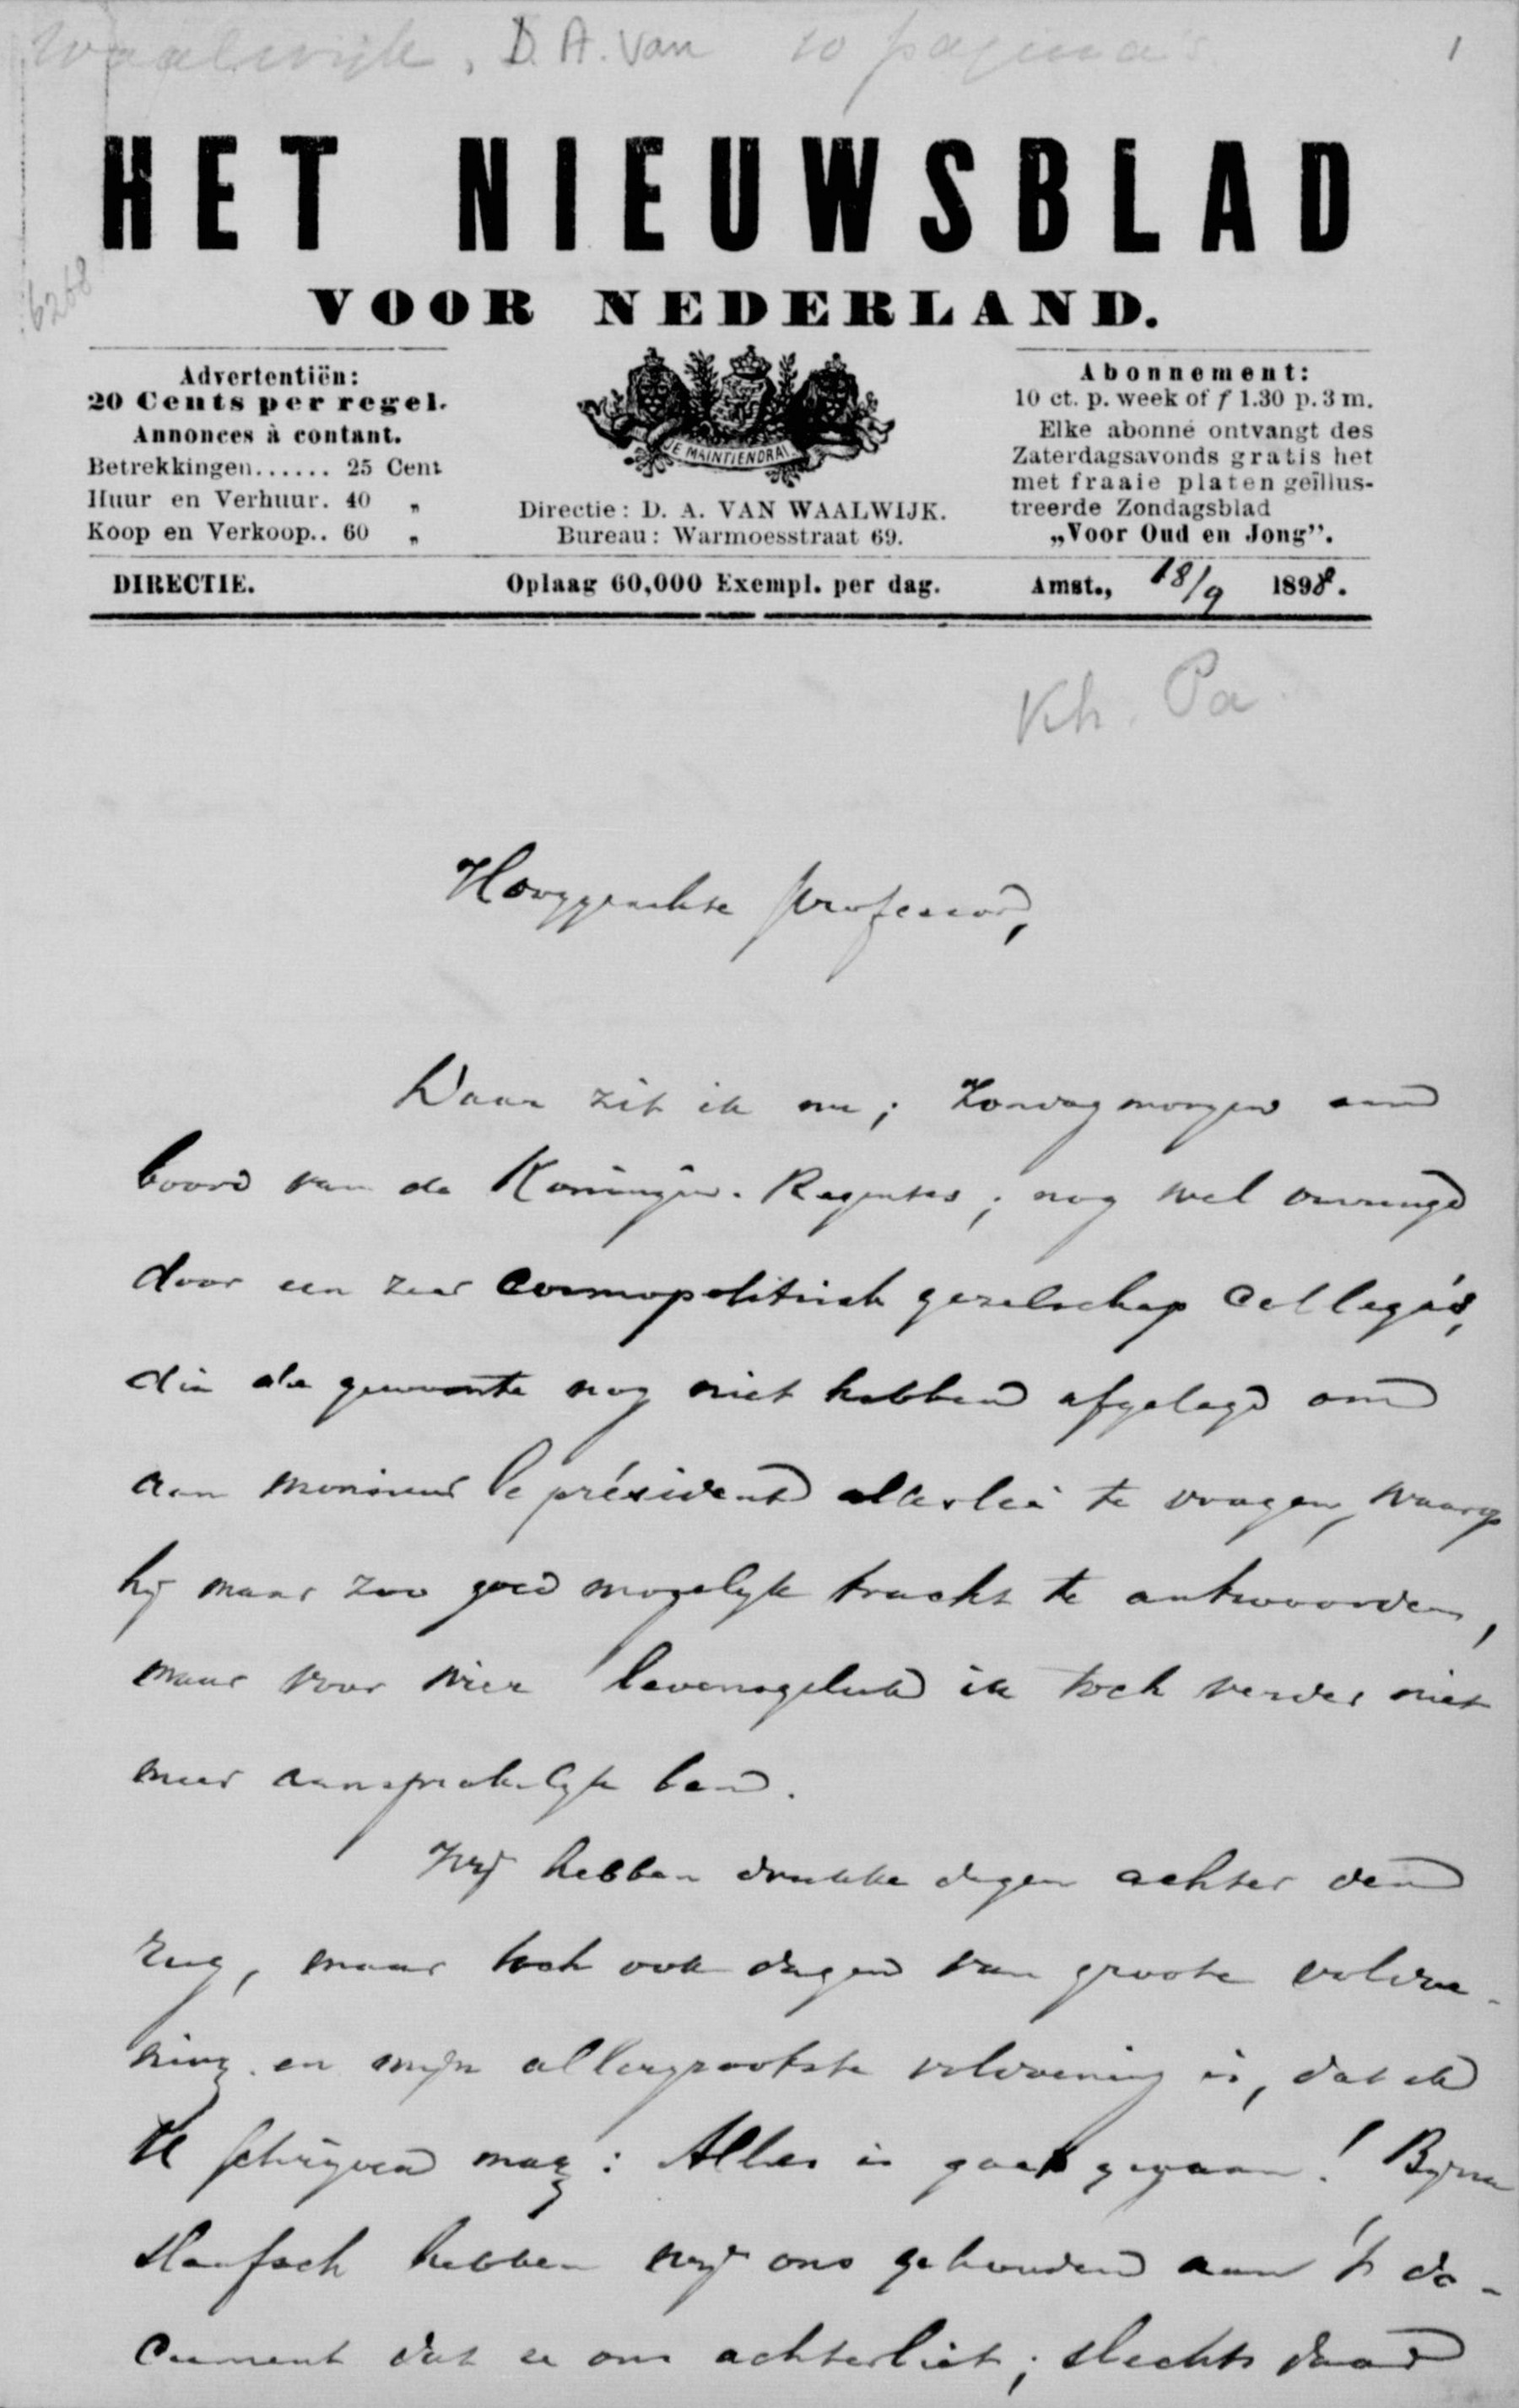 Waalwijk, D. A. van 10 pagina's 1
HET NIEUWSBLAD
VOOR NEDERLAND.
6268
Advertentiën:
20 Cents per regel.
Annonces à contant.
Betrekkingen...... 25 Cent
Huur en Verhuur. 40 „
Koop en Verkoop.. 60 „
JE MAINTIENDRAI
Directie: D. A. VAN WAALWIJK.
Bureau: Warmoesstraat 69.
Abonnement:
10 ct. p. week of f 1.30 p. 3 m.
Elke abonné ontvangt des
Zaterdagsavonds gratis het
met fraaie platen geïllus-
treerde Zondagsblad
„Voor Oud en Jong”.
DIRECTIE. Oplaag 60,000 Exempl. per dag. Amst., 18/9 1898.
Kh. Pa
Hooggeachte professor,
Daar zit ik nu; Zondagmorgen aan
boord van de Koningin-Regentes; nog wel omringd
door een zeer cosmopolitisch gezelschap collega's,
die de gewoonte nog niet hebben afgelegd om
aan monsieur le président allerlei te vragen, waarop
hij maar zoo goed mogelijk tracht te antwoorden,
maar voor wier levensgeluk ik toch verder niet
meer aansprakelijk ben.
Wij hebben drukke dagen achter den
rug, maar toch ook dagen van groote voldoe-
ning en mijn allergrootste voldoening is, dat ik
U schrijven mag: Alles is goed gegaan! Bijna
slaafsch hebben wij ons gehouden aan 't do-
cument dat U ons achterliet; slechts daar